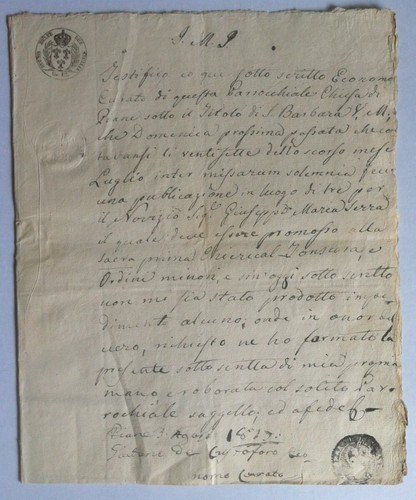 J. M. J.
Testifico io qui sotto scritto Economo
Curato di questa Parrocchiale Chiesa di
Piane sotto il Titolo di S. Barbara V. M.
che Domenica prossima passata che con
tavansi li ventisette dello scorso mese
Luglio inter missarum solemnia feci
una publicazione in luogo di tre per
il Novizio Sig. Giuseppe Maria Serra
il quale deve essere promosso alla
sacra prima Chierical Tonsura, e
Ordini minori, e sin'oggi sotto scritto
non mi sia stato prodotto impe
dimento alcuno, onde in onor del
vero, richiesto ne ho formato la
presente sotto scritta di mia propria
mano e roborata col solito Par
rochiale suggello; ed a fede
Piane 3 Agosto 1817:
de Cristofaro Eco
nomo Curato